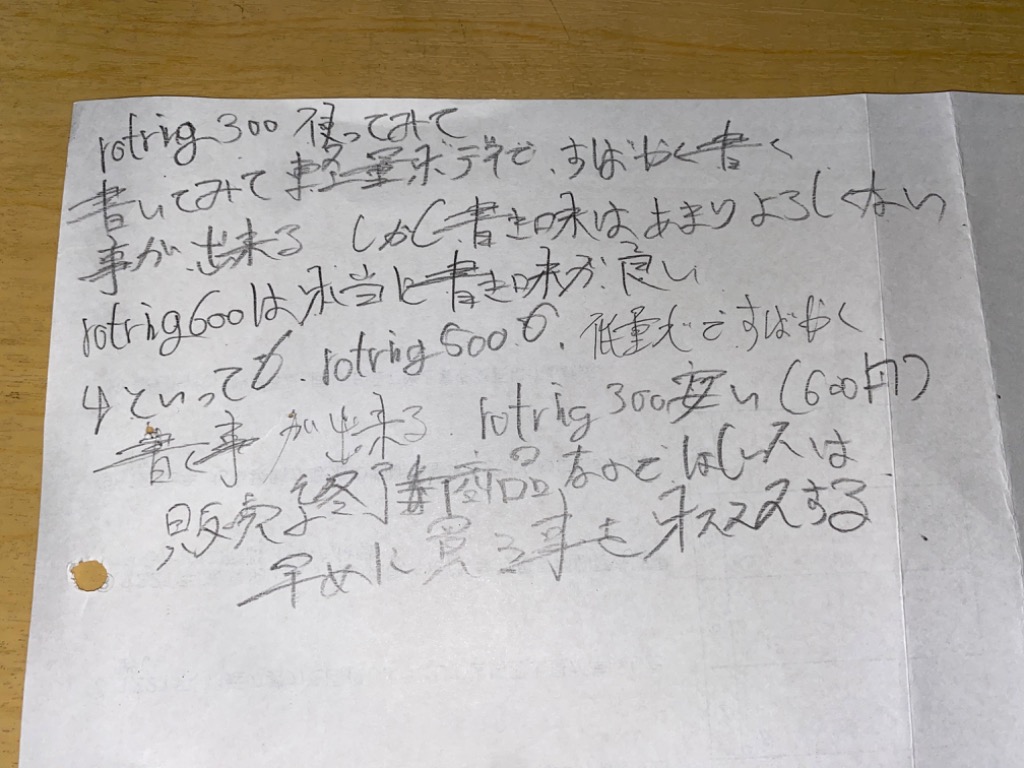 rotrig300 使ってみて
書いてみて軽量ボディで、すばやく書く
事が、出来る しかし書き味はあまりよろしくない
rotrig600は本当に書き味が良い
といっても、rotrig500も、低重心ですばやく
書く事が出来る rotrig300安い(600円)
販売終了商品なのでほしい人は
早めに買る事をオススメする